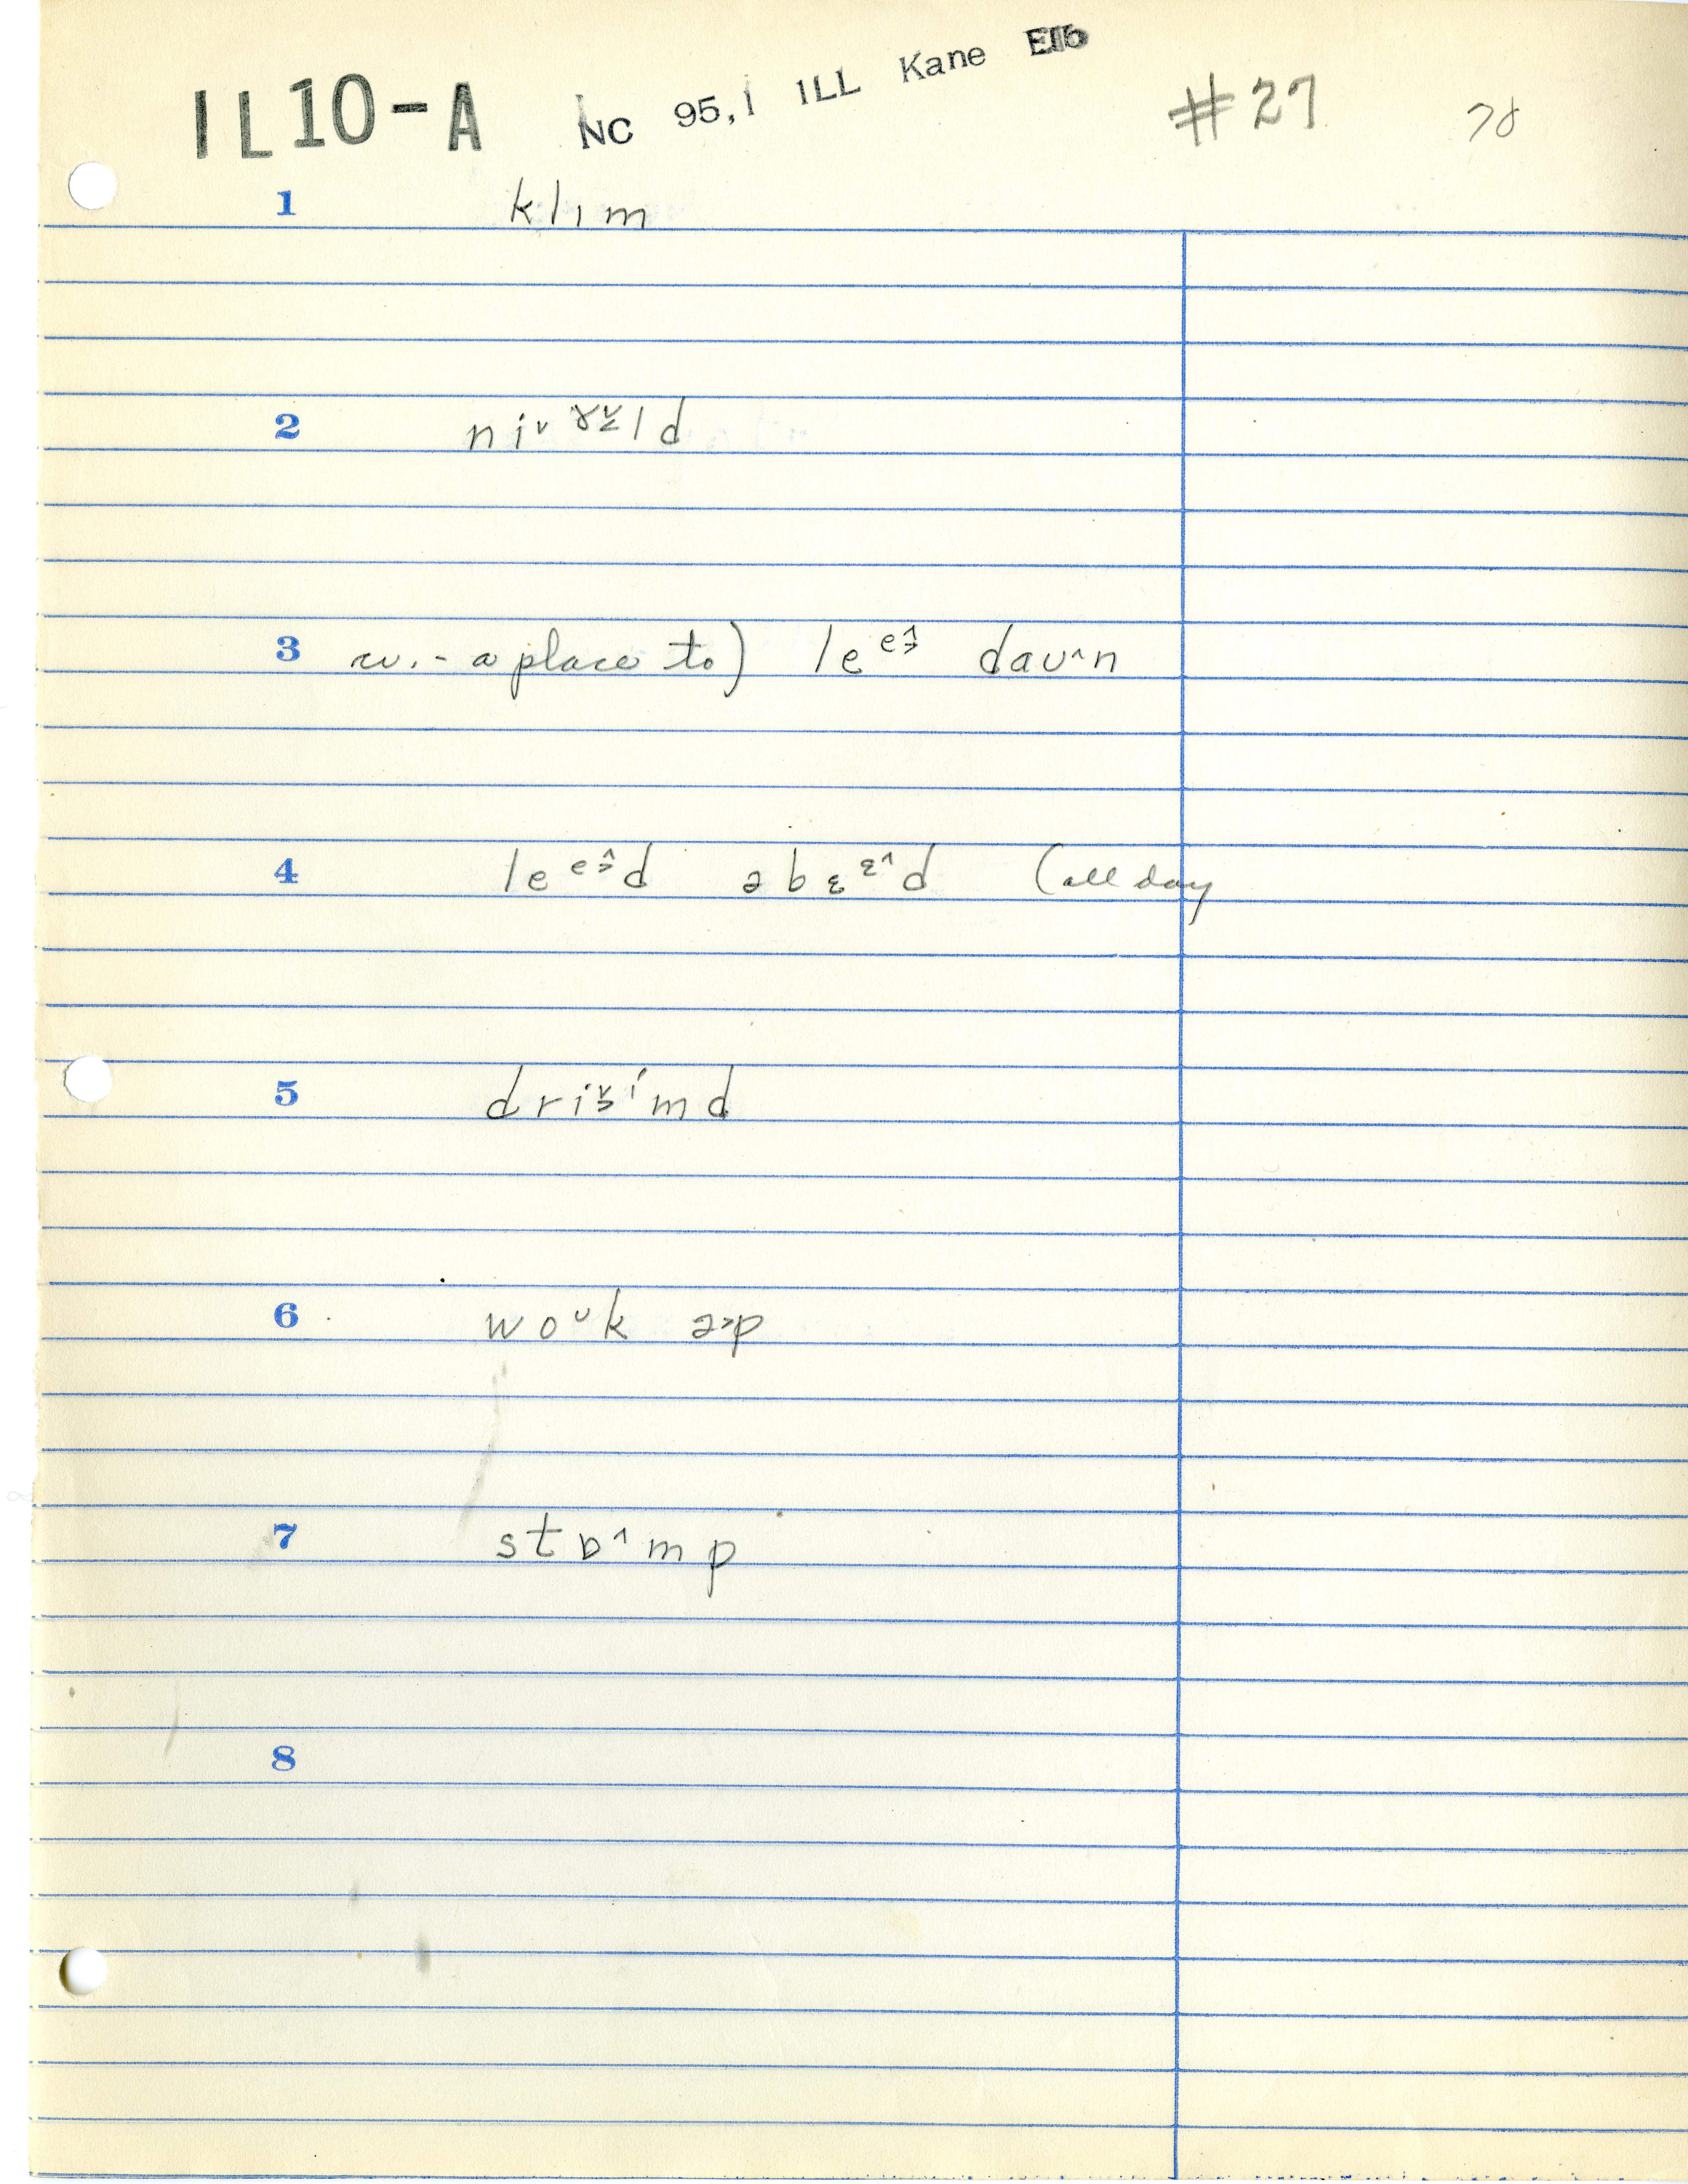 IL10-A NC 95,1 ILL Kane E16 #27 78
1 klɪm
2 niᵛ ɤᵛld
3 w.- a place to) leᵉ˄ daʊ^n
4 leᵉ˄d əbɛᵋ^d (all day
5 driᵛɨmd
6 woᵘk əp
7 stɒ^mp
8